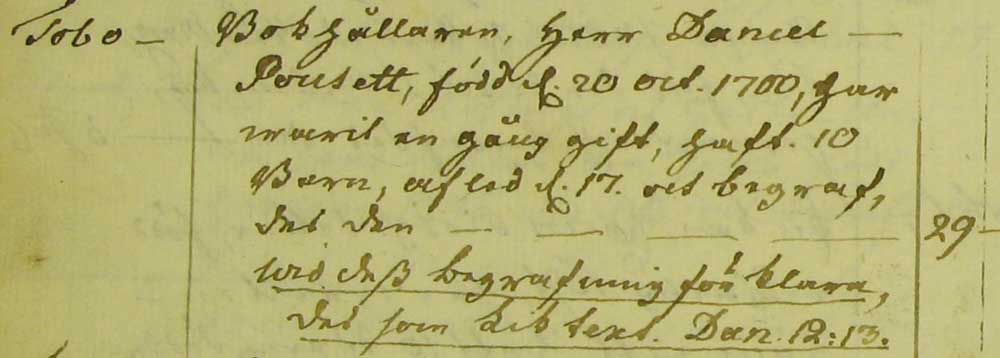 Tobo — Bokhållaren, Herr Daniel —
Pousett, född d. 20 oct. 1700, har
warit en gång gift, haft. 10
Barn, afled d. 17. oct begraf,
des den — — — — 29 —
wid deß begrafning förklara,
des som Lik text. Dan. 12:13.